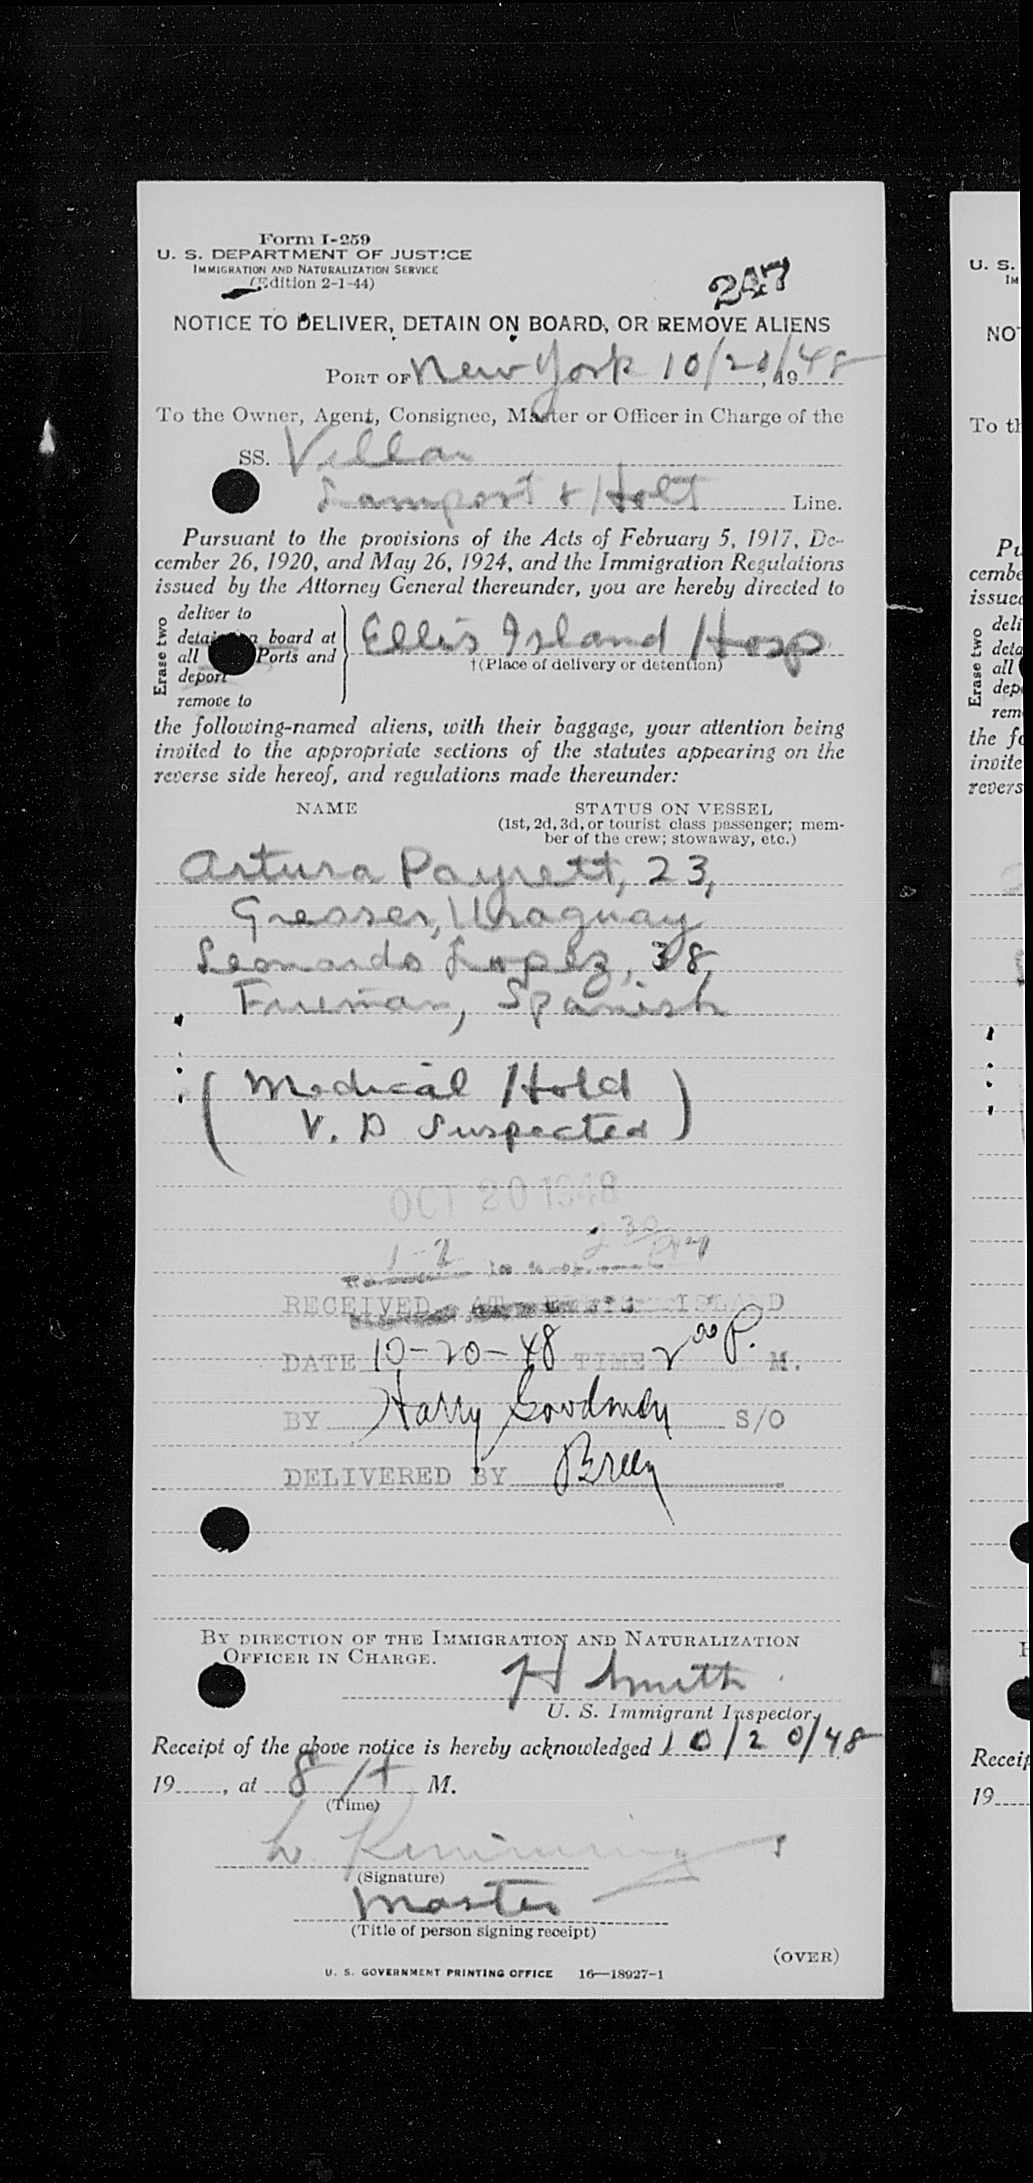 Form I-259
U. S. DEPARTMENT OF JUSTICE
IMMIGRATION AND NATURALIZATION SERVICE
(Edition 2-1-44)
247
NOTICE TO DELIVER, DETAIN ON BOARD, OR REMOVE ALIENS
PORT OF New York 10/20/, 1948
To the Owner, Agent, Consignee, Master or Officer in Charge of the
SS. Villar
Lamport & Holt Line.
Pursuant to the provisions of the Acts of February 5, 1917, De-
cember 26, 1920, and May 26, 1924, and the Immigration Regulations
issued by the Attorney General thereunder, you are hereby directed to
Erase two
deliver to
detain on board at
all Ports and
deport
remove to
Ellis Island Hosp
†(Place of delivery or detention)
the following-named aliens, with their baggage, your attention being
invited to the appropriate sections of the statutes appearing on the
reverse side hereof, and regulations made thereunder:
NAME STATUS ON VESSEL
(1st, 2d, 3d, or tourist class passenger; mem-
ber of the crew; stowaway, etc.)
Arturo Payrett, 23,
Greaser, Uraguay
Leonardo Lopez, 38,
Fireman, Spanish
(Medical Hold
V. D Suspected)
OCT 20 1948
1-2 2 30
RECEIVED AT ELLIS ISLAND
DATE 10-20-48 TIME 2 00 P. M.
BY Harry Goodman S/O
DELIVERED BY Breen
BY DIRECTION OF THE IMMIGRATION AND NATURALIZATION
OFFICER IN CHARGE.
H Smith
U. S. Immigrant Inspector.
Receipt of the above notice is hereby acknowledged 10/20/48
19, at 8 A M.
(Time)
(Signature)
Master
(Title of person signing receipt)
(OVER)
U. S. GOVERNMENT PRINTING OFFICE 16—18927-1